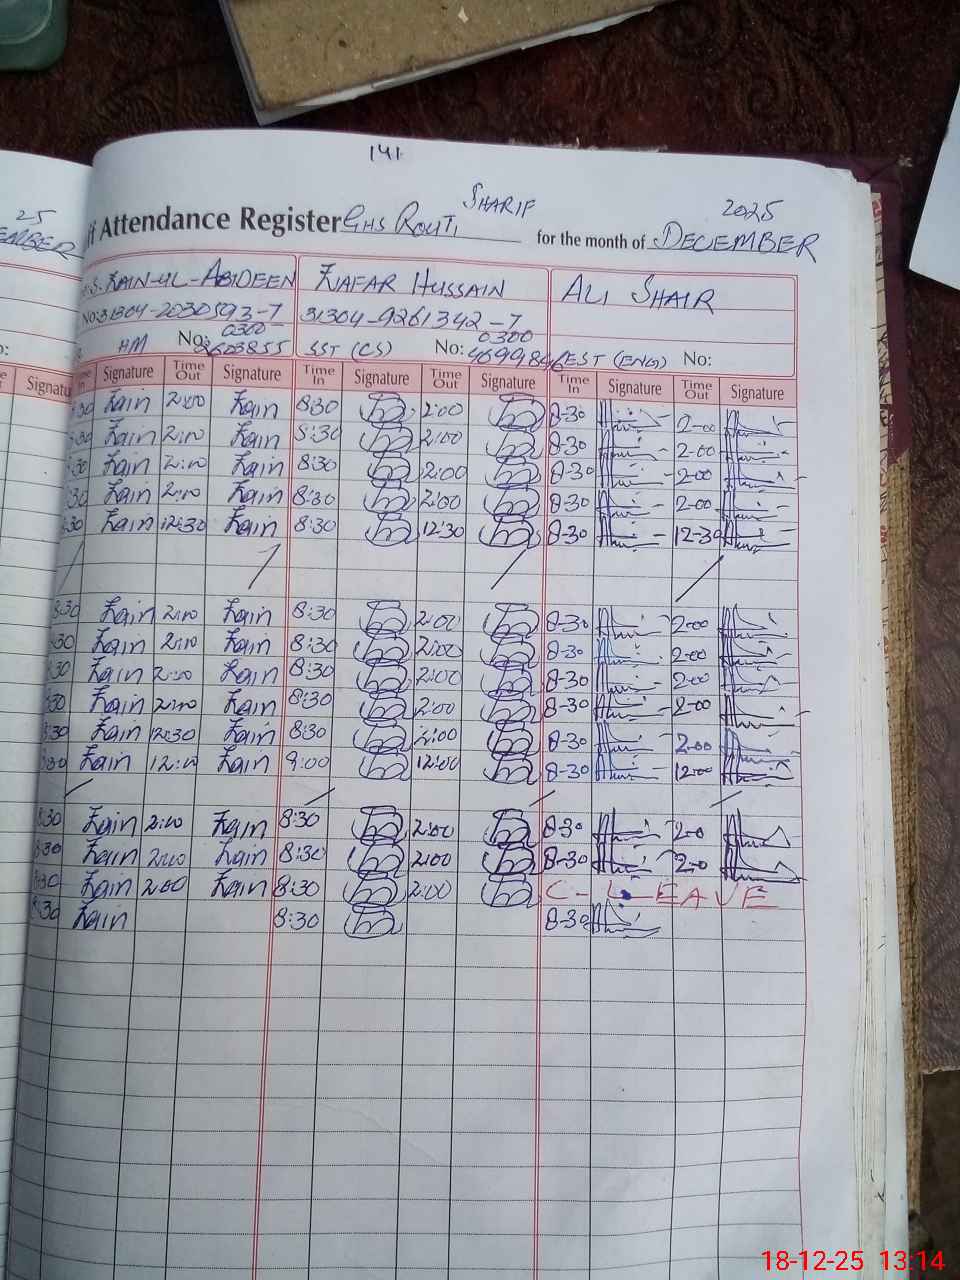 141
25
SHARIF
2025
EMBER
Attendance Register GHS ROUTI for the month of DECEMBER
S. ZAIN-UL-ABIDEEN ZAFAR HUSSAIN ALI SHAIR
No:31304-2030593-7 31304-9261342-7
0300 0300
HM No: 2603855 SST (CS) No: EST (ENG) No:
Signature Time Out Signature Time In Signature Time Out Signature Time In Signature Time Out Signature
:30 Zain 2:00 Zain 8:30 2:00 8-30 2-00
:30 Zain 2:00 Zain 8:30 2:00 8-30 2-00
:30 Zain 2:00 Zain 8:30 2:00 8-30 2-00
:30 Zain 2:00 Zain 8:30 2:00 8-30 2-00
:30 Zain 12:30 Zain 8:30 12:30 8-30 12-30
8:30 Zain 2:00 Zain 8:30 2:00 8-30 2-00
:30 Zain 2:00 Zain 8:30 2:00 8-30 2-00
8:30 Zain 2:00 Zain 8:30 2:00 8-30 2-00
:30 Zain 2:00 Zain 8:30 2:00 8-30 2-00
8:30 Zain 12:30 Zain 8:30 2:00 8-30 2-00
8:30 Zain 12:00 Zain 9:00 12:00 8-30 12-00
8:30 Zain 2:00 Zain 8:30 2:00 8-30 2-0
8:30 Zain 2:00 Zain 8:30 2:00 8-30 2-0
8:30 Zain 2:00 Zain 8:30 2:00 C-LEAVE
8:30 Zain 8:30 8-30
18-12-25 13:14